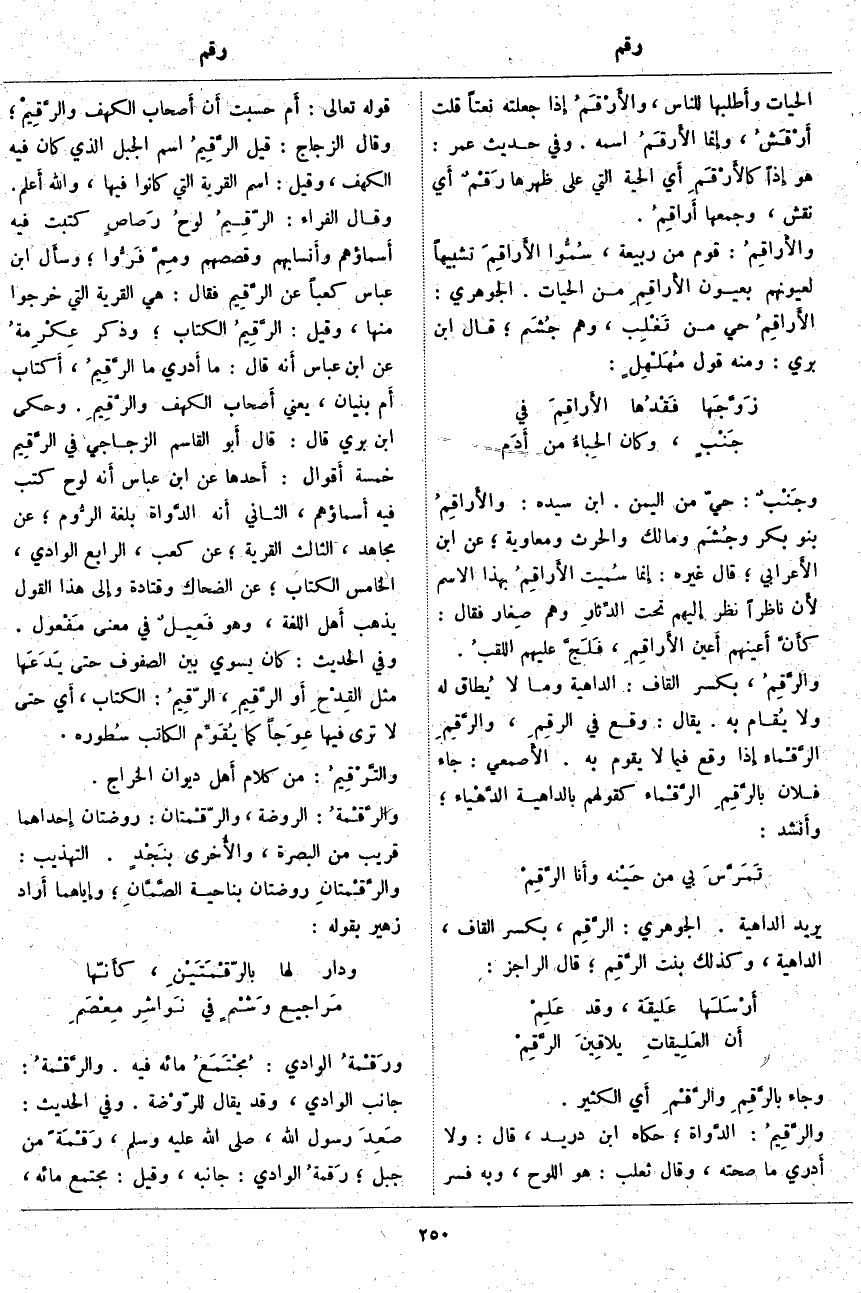 رقم
رقم
الحيات وأطلبها للناس ، والأَرْقَمُ إذا جعلته نعتاً قلت
أَرْقَشُ ، وإنما الأَرقَمُ اسمه . وفي حديث عمر :
هو إذاً كالأَرْقَمِ أي الحية التي على ظهرها رَقْمٌ أي
نقش ، وجمعها أَراقِمُ .
والأَراقِمُ : قوم من ربيعة ، سُمُّوا الأَراقِمَ تشبيهاً
لعيونهم بعيون الأَراقِمِ من الحيات . الجوهري :
الأَراقِمُ حي من تَغْلِب ، وهم جُشَم ؛ قال ابن
بري : ومنه قول مُهَلْهِلٍ :
زَوَّجَها فَقْدُها الأَراقِمَ في
جَنْبٍ ، وكان الحِباءُ من أَدَمِ
وجَنْبٌ : حيّ من اليمن . ابن سيده : والأَراقِمُ
بنو بكر وجُشَم ومالك والحرث ومعاوية ؛ عن ابن
الأَعرابي ؛ قال غيره : إنما سُميت الأَراقِمُ بهذا الاسم
لأن ناظراً نظر إليهم تحت الدِّثارِ وهم صِغار فقال :
كأَنَّ أعينهم أعين الأَراقِمِ ، فَلَجَّ عليهم اللقبُ .
والرَّقِمُ ، بكسر القاف : الداهية وما لا يُطاق له
ولا يُقام به . يقال : وقع في الرقِمِ ، والرَّقِمِ
الرَّقْماء إذا وقع فيما لا يقوم به . الأصمعي : جاء
فلان بالرَّقِمِ الرَّقْماء كقولهم بالداهية الدَّهْياء ؛
وأنشد :
تَمَرَّسَ بي من حَيْنه وأنا الرَّقِمْ
يريد الداهية . الجوهري : الرَّقِم ، بكسر القاف ،
الداهية ، وكذلك بنت الرَّقِم ؛ قال الراجز :
أَرْسَلَها عَلِيقَة ، وقد عَلِمْ
أن العَلِيقاتِ يلاقِينَ الرَّقِمْ
وجاء بالرَّقِمِ والرَّقْمِ أي الكثير .
والرَّقِيمُ : الدَّواة ؛ حكاه ابن دريد ، قال : ولا
أدري ما صحته ، وقال ثعلب : هو اللوح ، وبه فسر
قوله تعالى : أم حسبت أن أصحاب الكهف والرَّقِيمْ ؛
وقال الزجاج : قيل الرَّقِيمُ اسم الجبل الذي كان فيه
الكهف ، وقيل : اسم القرية التي كانوا فيها ، والله أعلم.
وقال الفراء : الرَّقِيمُ لوحُ رَصاصٍ كتبت فيه
أسماؤهم وأنسابهم وقصصهم ومِمَّ فَرُّوا ؛ وسأل ابن
عباس كعباً عن الرَّقِيم فقال : هي القرية التي خرجوا
منها ، وقيل : الرَّقِيمُ الكتاب ؛ وذكر عِكْرِمةُ
عن ابن عباس أنه قال : ما أدري ما الرَّقِيمُ ، أكتاب
أم بنيان ، يعني أصحاب الكهف والرَّقِيمِ . وحكى
ابن بري قال : قال أبو القاسم الزجاجي في الرَّقِيم
خمسة أقوال : أحدها عن ابن عباس أنه لوح كتب
فيه أسماؤهم ، الثاني أنه الدَّواة بلغة الرُّوم ؛ عن
مجاهد ، الثالث القرية ؛ عن كعب ، الرابع الوادي ،
الخامس الكتاب ؛ عن الضحاك وقتادة وإلى هذا القول
يذهب أهل اللغة ، وهو فَعِيلٌ في معنى مَفْعول .
وفي الحديث : كان يسوي بين الصفوف حتى يَدَعَها
مثل القِدْحِ أو الرَّقِيمِ ، الرَّقِيمُ : الكتاب ، أي حتى
لا ترى فيها عِوَجاً كما يُقَوِّم الكاتب سُطوره .
والتَّرْقِيمُ : من كلام أهل ديوان الخراج .
والرَّقْمةُ : الروضة ، والرَّقْمتان : روضتان إحداهما
قريب من البصرة ، والأُخرى بنَجْدٍ . التهذيب :
والرَّقْمتانِ روضتان بناحية الصَّمَّانِ ؛ وإياهما أراد
زهير بقوله :
ودار لها بالرَّقْمَتَيْنِ ، كأنّها
مَراجيع وَشْمٍ في نَواشِرِ مِعْصَمِ
ورَقْمةُ الوادي : مُجْتَمَعُ مائه فيه . والرَّقْمةُ :
جانب الوادي ، وقد يقال للرَّوْضة . وفي الحديث :
صَعِدَ رسول الله ، صلى الله عليه وسلم ، رَقْمَةً من
جبل ؛ رَقمةُ الوادي : جانبه ، وقيل : مجتمع مائه ،
٢٥٠